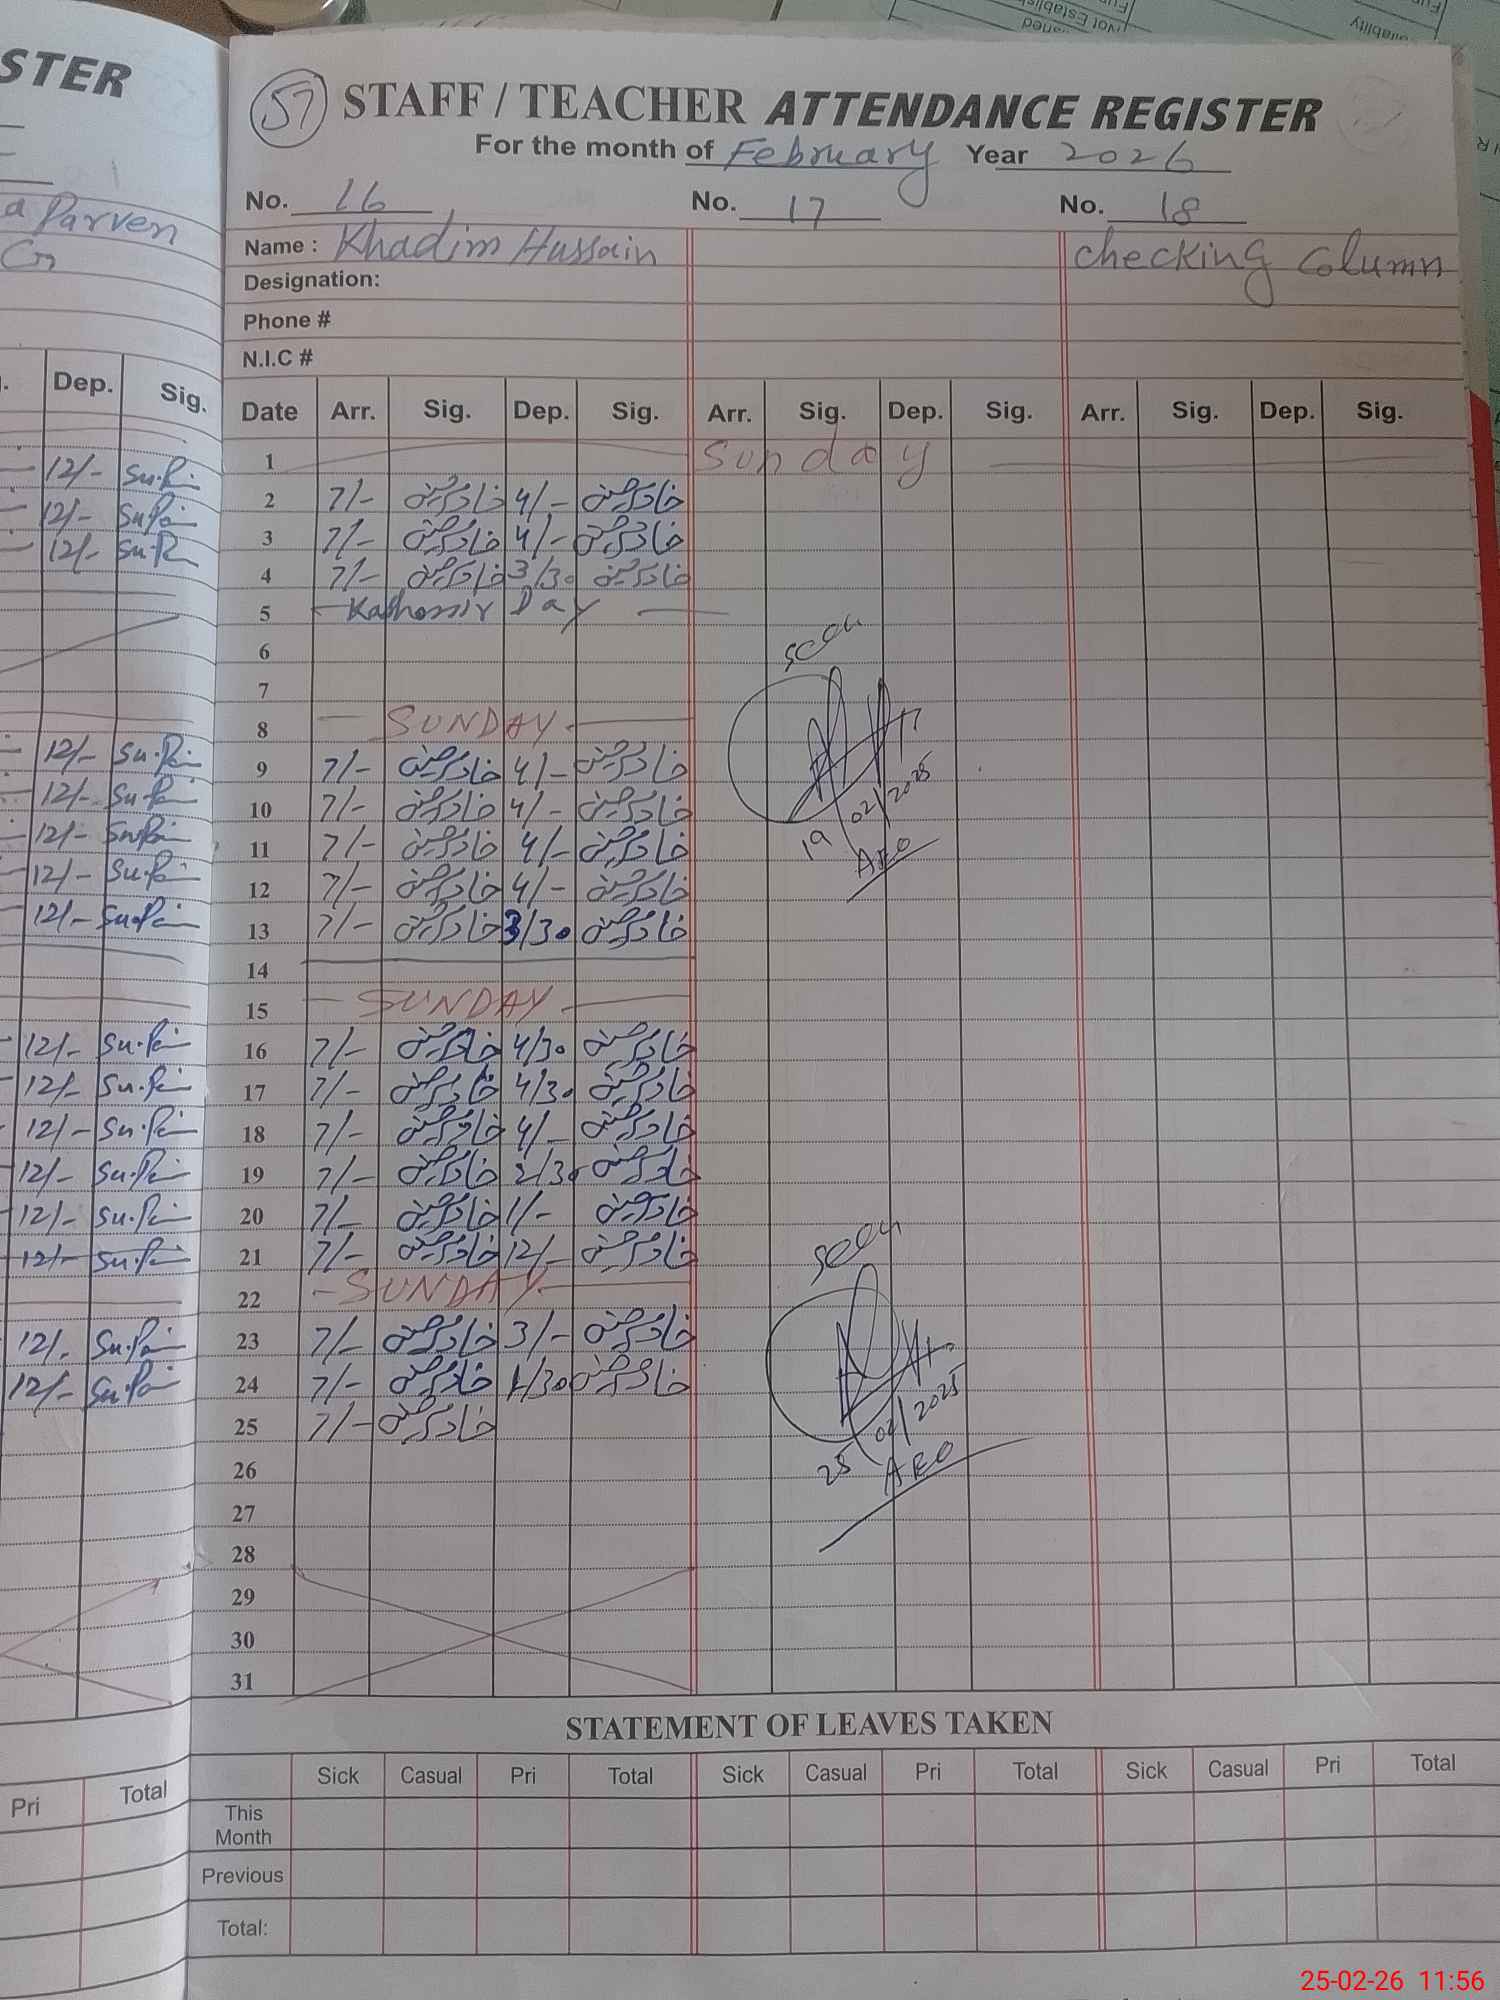 STER
57 STAFF / TEACHER ATTENDANCE REGISTER
For the month of February Year 2026
No. 16 No. 17 No. 18
Name : Khadim Hussain checking Column
Designation:
Phone #
N.I.C #
Date Arr. Sig. Dep. Sig. Arr. Sig. Dep. Sig. Arr. Sig. Dep. Sig.
1 Sunday
2 7/- خادم حسین 4/- خادم حسین
3 7/- خادم حسین 4/- خادم حسین
4 7/- خادم حسین 3/30 خادم حسین
5 Kashomir Day
6 seen
7
8 SUNDAY
9 7/- خادم حسین 4/- خادم حسین
10 7/- خادم حسین 4/- خادم حسین 19/02/2025
11 7/- خادم حسین 4/- خادم حسین AEO
12 7/- خادم حسین 4/- خادم حسین
13 7/- خادم حسین 3/30 خادم حسین
14
15 SUNDAY
16 7/- خادم حسین 4/30 خادم حسین
17 7/- خادم حسین 4/30 خادم حسین
18 7/- خادم حسین 4/- خادم حسین
19 7/- خادم حسین 2/30 خادم حسین
20 7/- خادم حسین 1/- خادم حسین
21 7/- خادم حسین 12/- خادم حسین seen
22 SUNDAY
23 7/- خادم حسین 3/- خادم حسین
24 7/- خادم حسین 1/30 خادم حسین
25 7/- خادم حسین 25/02/2025
26 AEO
27
28
29
30
31
STATEMENT OF LEAVES TAKEN
Sick Casual Pri Total Sick Casual Pri Total Sick Casual Pri Total
This Month
Previous
Total:
a Parven
Dep. Sig.
12/- Su.Pa
12/- Su.Pa
12/- Su.Pa
12/- Su.Pa
12/- Su.Pa
12/- Su.Pa
12/- Su.Pa
12/- Su.Pa
12/- Su.Pa
12/- Su.Pa
12/- Su.Pa
12/- Su.Pa
12/- Su.Pa
12/- Su.Pa
12/- Su.Pa
12/- Su.Pa
Pri Total
25-02-26 11:56